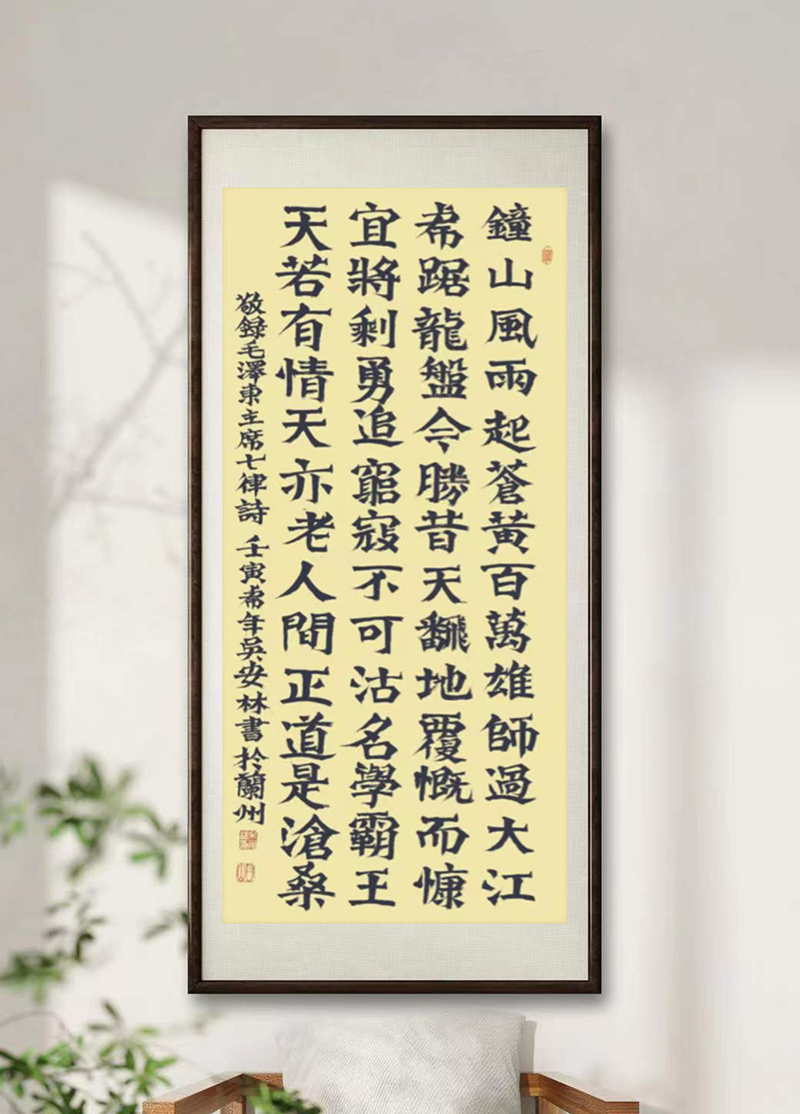 鐘山風雨起蒼黃百萬雄師過大江
虎踞龍盤今勝昔天飜地覆慨而慷
宜將剩勇追窮寇不可沽名學霸王
天若有情天亦老人間正道是滄桑
敬錄毛澤東主席七律詩 壬寅虎年吳安林書於蘭州